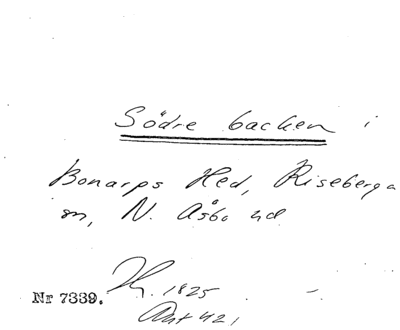 Södre backen i
Bonarps Hed, Riseberga
sn, N. Åsbo hd
Nr 7339. H. 1825
Ant 421